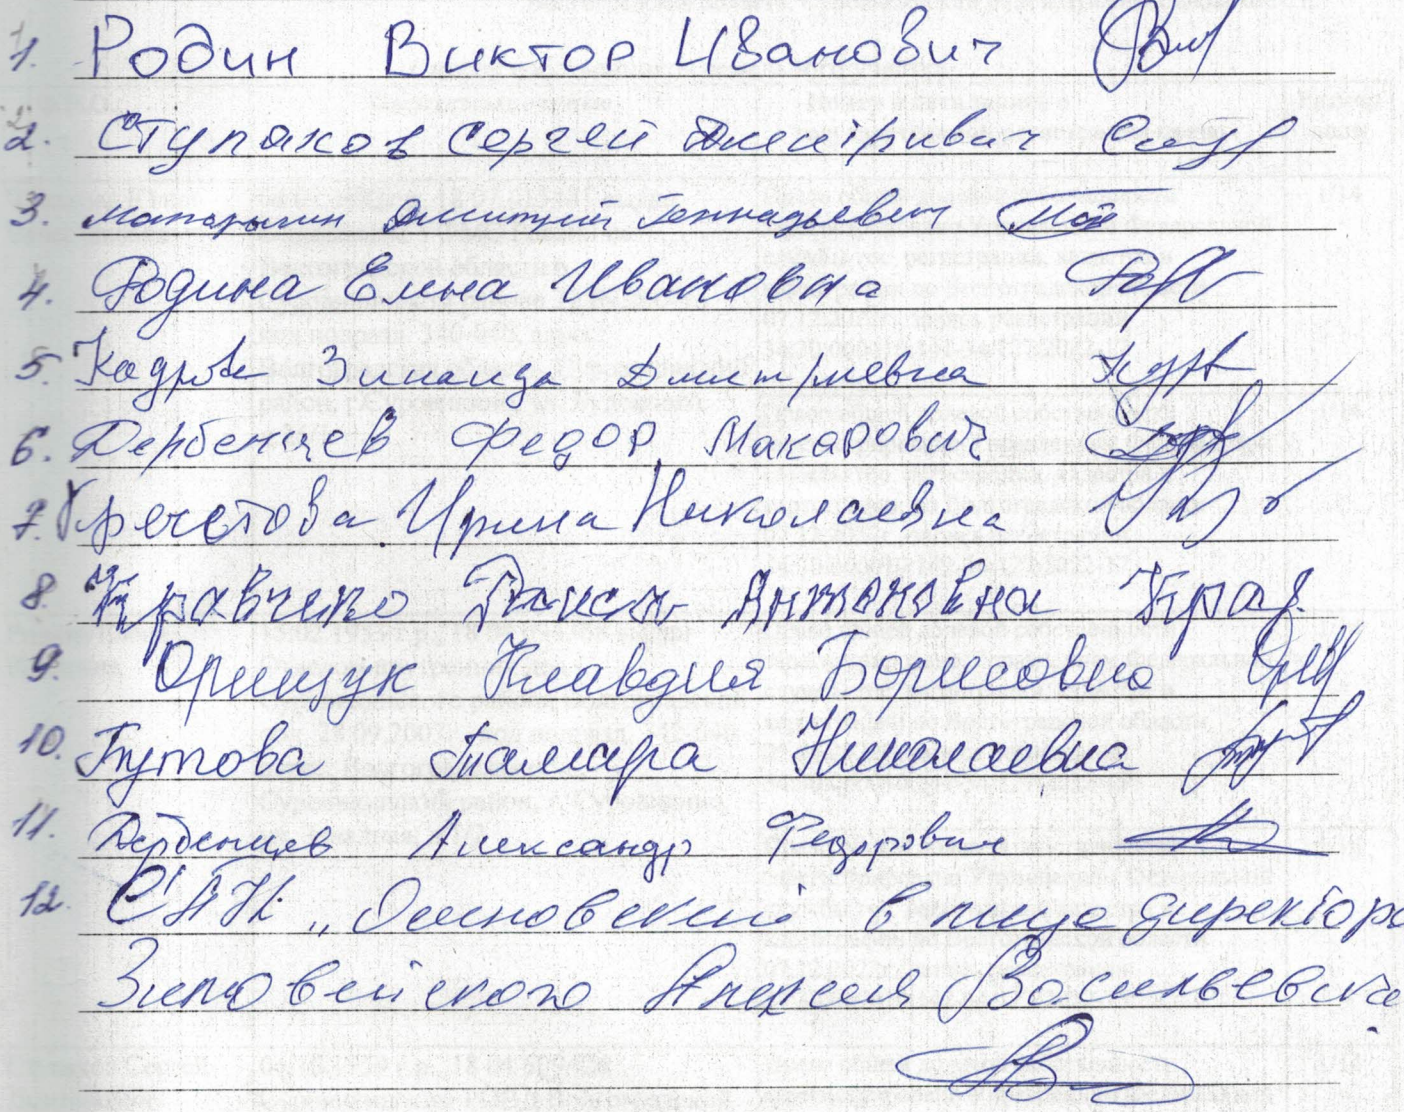 1. Родин Виктор Иванович
2. Ступаков Сергей Дмитривич
3. Матарыгин Дмитрий Геннадьевич
4. Родина Елена Ивановна
5. Кадрова Зинаида Дмитриевна
6. Дербенцев Федор Макарович
7. Кречетова Ирина Николаевна
8. Кравченко Таисия Антоновна Крав
9. Орищук Клавдия Борисовна
10. Бутова Тамара Николаевна
11. Дербенцев Александр Федорович
12. в лице директора
Зимовейского Алексея Васильевича